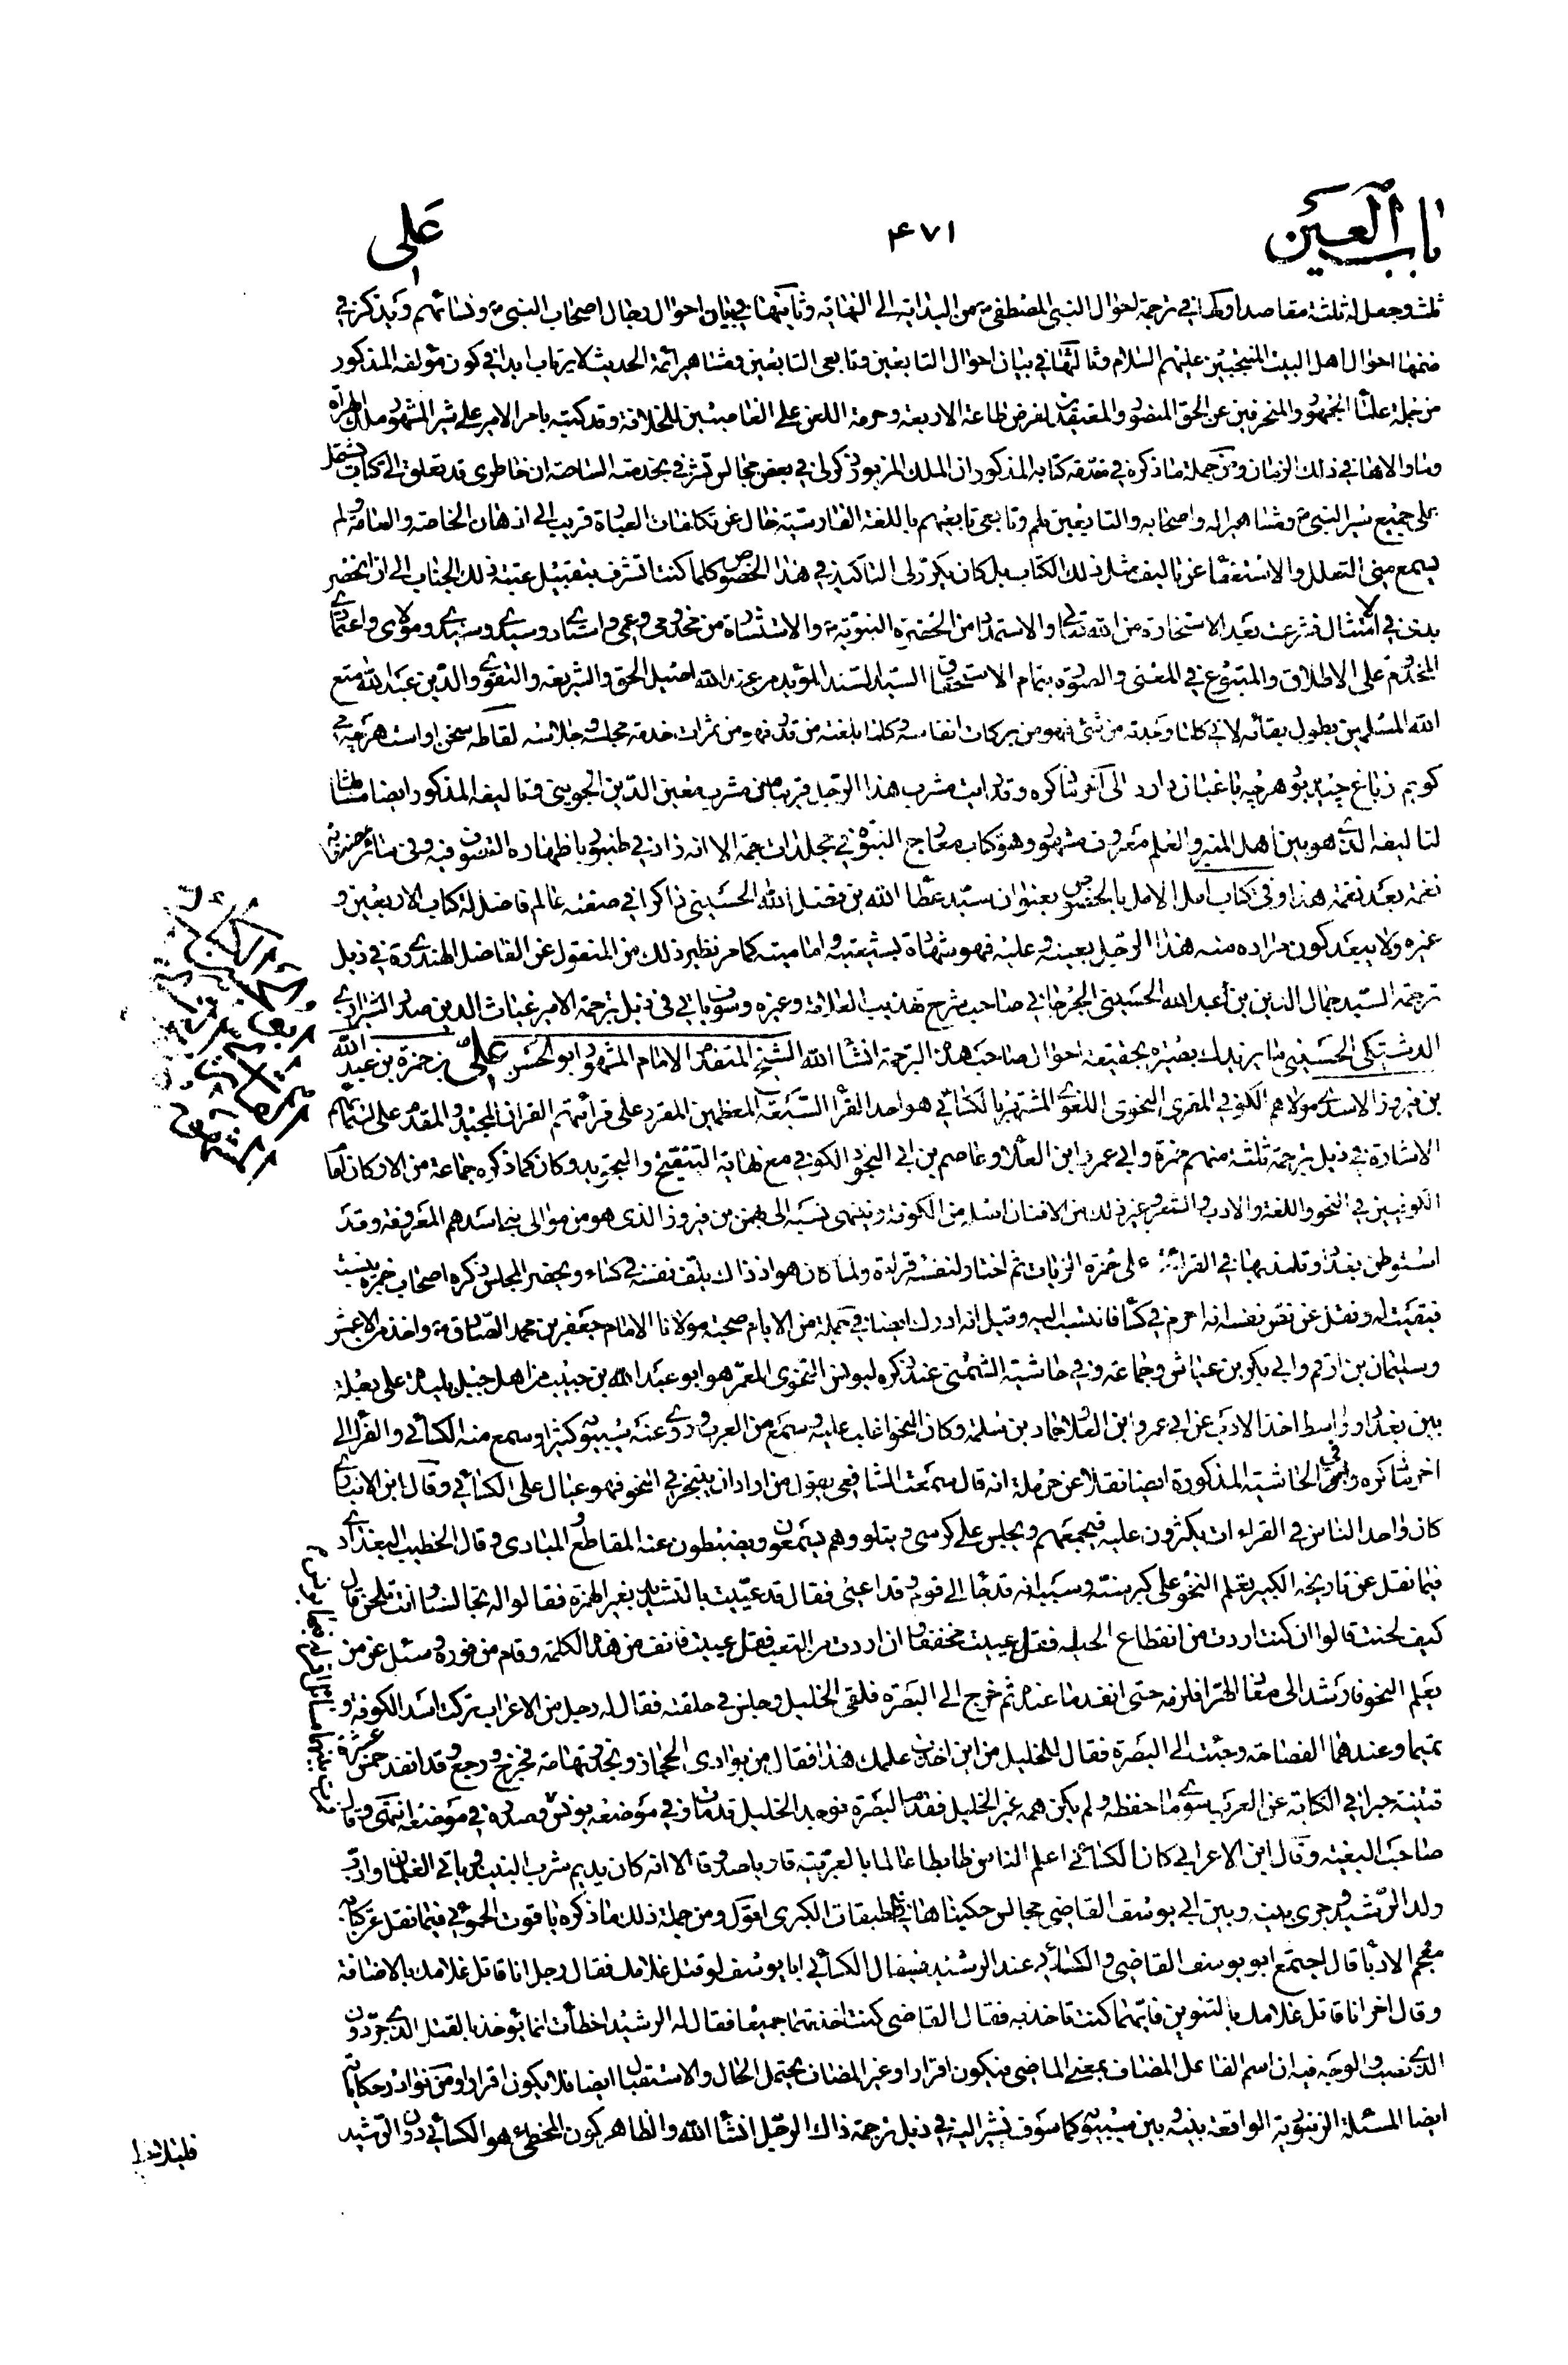 باب العين
٤٧١
على
ثلث وجعل له ثلثة مقاصد اولها في ترجمة احوال النبي المصطفى ص من البداية الى النهاية وثانيها في بيان احوال رجال اصحاب النبي ص ونسائهم ويذكر في
ضمنها احوال اهل البيت المنتجبين عليهم السلام وثالثها في بيان احوال التابعين وتابعى التابعين ومشاهير ائمة الحديث لا يرتاب ابدا في كون مؤلفه المذكور
من جملة علماء الجمهور والمنحرفين عن الحق المنصور والمعتقدين لفرض طاعة الاربعة وحرمة اللعن على الغاصبين للخلافة وقد كتبه بامر الامير علي شير المشهور ملك الهراة
وما والاها في ذلك الزمان ومن جملة ما ذكره في مقدمة كتابه المذكور ان الملك المزبور ذكر لى في بعض مجالس تشرفي بخدمته الساحة ان خاطرى قد تعلق الى كتاب يشتمل
على جميع سير النبي ص ومشاهير اله واصحابه والتابعين لهم وتابعى تابعيهم باللغة الفارسية خال عن تكلفات العبارة قريب الى اذهان الخاصة والعامة ولم
يسمع مني التعلل والاستعفاء عن تاليف مثل ذلك الكتاب بل كان يكرر لى التاكيد في هذا الخصوص كلما كنت اتشرف بتقبيل عتبة ذلك الجناب الى ان انحصر
بدني في الامتثال فشرعت بعيد الاستخارة من الله تعالى والاستمداد من الحضرة النبوية ص والاستشارة من مخدومى وعمى واستادى وسيدى وسندى ومولاى واعتمادى
المخدوم على الاطلاق والمتبوع في المعنى والصورة بتمام الاستحقاق السيد السند المؤيد من عند الله اصيل الحق والشريعة والتقوى والدين عبد الله متع
الله المسلمين بطول بقائه لاني كلما وجدته من شئ فهو من بركات انفاسه وكلما بلغته من قدر فهو من ثمرات خدمة مجلسه وجلائسه لقاطه سخن اوست هرچه مى
كويم زباغ چيند بو هرچه باغبان دارد الى آخر ما ذكره وقد رايت مشرب هذا الرجل قريبا من مشرب معين الدين الجوينى وتاليفه المذكور ايضا مشابها
لتاليفه الذى هو بين اهل المنبر والعلم معروف مشهور وهو كتاب معارج النبوة في مجلدات جمة الا انه زاد في طنبوره باظهاره التصوف فيه وفى سائر مصنفاته
نغمة بعد نغمة هذا وفي كتاب امل الامل بالخصوص بعنوان سيد عطاء الله بن فضل الله الحسيني ذاكرا في صفته عالم فاضل له كتاب الاربعين و
غيره ولا يبعد كون مراده منه هذا الرجل بعينه وعليه فهو شهادة بشيعيته واماميته كما مر نظير ذلك من المنقول عن الفاضل الهندى ره في ذيل
ترجمة السيد جمال الدين بن عبد الله الحسيني الجرجاني صاحب شرح تهذيب العلامة وغيره وسوف ياتى في ذيل ترجمة الامير غياث الدين صدر الشيرازى
الدشتكى الحسيني ما يزيدك بصيرة بحقيقة احوال صاحب هذه الترجمة انشاء الله الشيخ المتقدم الامام المشهور ابو الحسن على بن حمزة بن عبد الله
بن فيروز الاسدى مولاهم الكوفي المقرى النحوى اللغوى المشتهر بالكسائي هو احد القراء السبعة المعظمين المقرر على قرائتهم القران المجيد والمقدم على اسمائهم
الاشارة في ذيل ترجمة ثلثة منهم حمزة وابي عمرو ابن العلاء وعاصم بن ابي النجود الكوفي مع نهاية التنقيح والتجويد وكان كما ذكره جماعة من الاركان امام
الكوفيين في النحو واللغة والادب والشعر وغير ذلك من الافنان اصله من الكوفة وينتهى نسبه الى بهمن بن فيروز الذى هو من موالى بنى اسد هم المعروفة وقد
استوطن بغداد وتلمذ بها في القرائة على حمزة الزيات ثم اختار لنفسه قراءة ولما كان هو اذ ذاك يلتف نفسه في كساء ويحضر المجلس ذكره اصحاب حمزة بنسبته
فبقيت له ونقل عن نص نفسه انه احرم في كساء فانتسب اليه وقيل انه ادرك ايضا في جملة من الايام صحبة مولانا الامام جعفر بن محمد الصادق ع واخذ من الاعمش
وسليمان بن ارقم وابي بكر بن عياش وجماعة وفي حاشية الشمنى عند ذكره ليونس النحوى المعمر هو ابو عبد الله بن حبيب من اهل جبيل بليدة على دجلة
بين بغداد وواسط اخذ الادب عن ابي عمرو ابن العلاء وحماد بن سلمة وكان النحو اغلب عليه وسمع من العرب وروى عنه سيبويه كثيرا وسمع منه الكسائي والفراء الى
اخر ما ذكره وفي الحاشية المذكورة ايضا نقلا عن حرملة انه قال سمعت الشافعي يقول من اراد ان يتبحر في النحو فهو عيال على الكسائي وقال ابن الانبارى
كان واحد الناس في القراءات يكثرون عليه فيجمعهم ويجلس على كرسى ويتلو وهم يسمعون ويضبطون عنه المقاطع والمبادى وقال الخطيب البغدادى
فيما نقل عن تاريخه الكبير تعلم النحو على كبر سنه وسببه انه قد جاء الى قوم وقد اعيى فقال قد عييت بالتشديد بغير الهمزة فقالوا له تجالسنا وانت تلحن قال
كيف لحنت قالوا ان كنت اردت من انقطاع الحيلة فقل عييت مخففة وان اردت من التعب فقل اعييت فانف من هذه الكلمة وقام من فوره وسئل عن من
يعلم النحو فارشد الى معاذ الهراء فلزمه حتى انفد ما عنده ثم خرج الى البصرة فلقى الخليل وجلس في حلقته فقال له رجل من الاعراب تركت اسد الكوفة و
تميما وعندهما الفصاحة وجئت الى البصرة فقال للخليل من اين اخذت علمك هذا فقال من بوادى الحجاز ونجد وتهامة فخرج ورجع وقد انفد خمس عشرة
قنينة حبرا في الكتابة عن العرب سوى ما حفظه ولم يكن همه غير الخليل فقدم البصرة فوجد الخليل قد مات وفي موضعه يونس وصدره في موضعه انتهى وقال
صاحب البغية وقال ابن الاعرابي كان الكسائي اعلم الناس ضابطا عالما بالعربية قاريا صدوقا الا انه كان يديم شرب النبيذ وياتي الغلمان وادب
ولد الرشيد وجرى بينه وبين ابي يوسف القاضي مجالس حكيناها في الطبقات الكبرى اقول ومن جملة ذلك ما ذكره ياقوت الحموي فيما نقل عن كتابه
معجم الادباء قال اجتمع ابو يوسف القاضي والكسائي عند الرشيد فقال الكسائي ابا يوسف لو قتل غلامك فقال رجل انا قاتل غلامك بالاضافة
وقال اخر انا قاتل غلامك بالتنوين فايهما كنت تاخذ به فقال القاضي كنت اخذتهما جميعا فقال له الرشيد اخطأت انما يؤخذ بالقتل الذى جر دون
الذى نصب والوجه فيه ان اسم الفاعل المضاف بمعنى الماضي فيكون اقرارا وغير المضاف يحتمل الحال والاستقبال ايضا فلا يكون اقرارا ومن نوادر حكاياته
ايضا المسئلة الزنبورية الواقعة بينه وبين سيبويه كما سوف نشير اليه في ذيل ترجمة ذاك الرجل انشاء الله والظاهر كون المخطئ هو الكسائي دون الرشيد